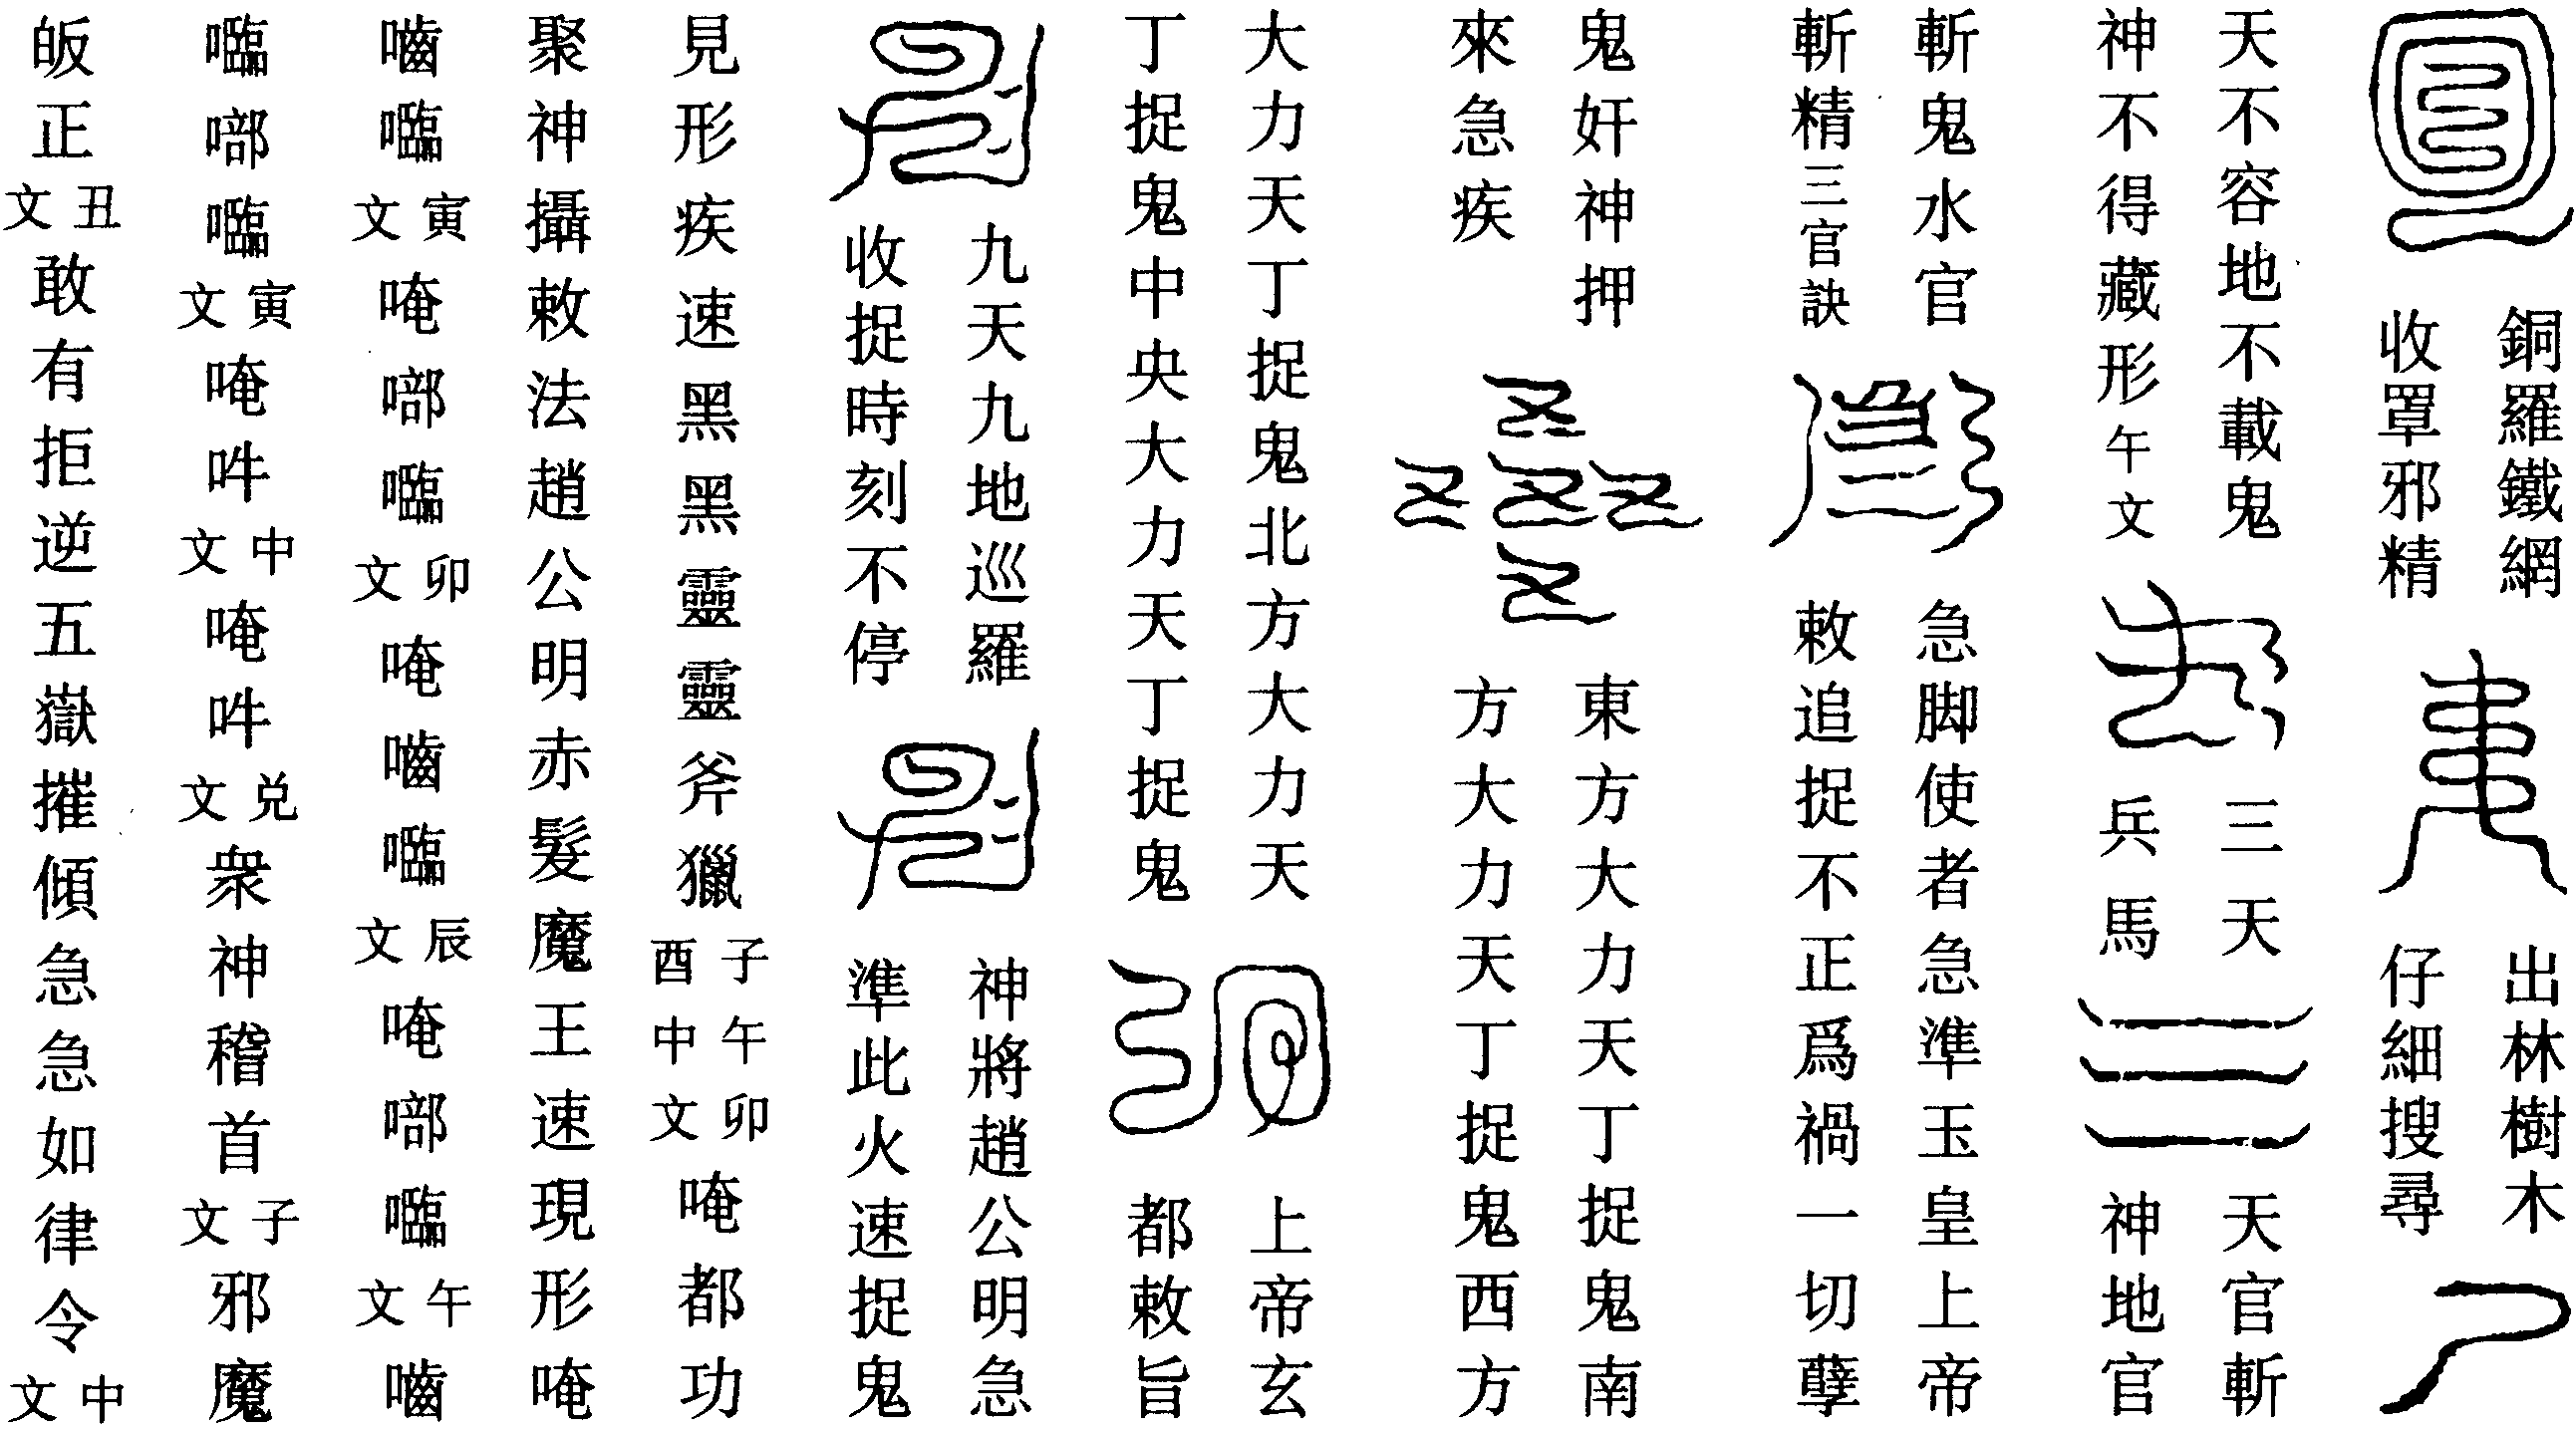 銅羅鐵網
收罩邪精
出林樹木
仔細搜尋
天不容地不載鬼
神不得藏形午文
三天
兵馬
天官斬
神地官
斬鬼水官
斬精三官訣
急脚使者急準玉皇上帝
敕追捉不正爲禍一切孽
鬼奸神押
來急疾
東方大力天丁捉鬼南
方大力天丁捉鬼西方
大力天丁捉鬼北方大力天
丁捉鬼中央大力天丁捉鬼
上帝玄
都敕旨
九天九地巡羅
收捉時刻不停
神將趙公明急
準此火速捉鬼
見形疾速黑黑靈靈斧獵子午卯酉中文唵都功
聚神攝敕法趙公明赤髮魔王速現形唵
嚙寅文唵卯文唵嚙辰文唵午文嚙
寅文唵吽中文唵吽兑文衆神稽首子文邪魔
皈正丑文敢有拒逆五嶽摧傾急急如律令中文